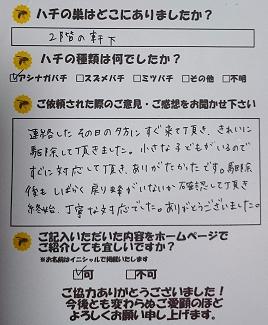 ハチの巣はどこにありましたか?
2階の軒下
ハチの種類は何でしたか?
☑アシナガバチ □スズメバチ □ミツバチ □その他 □不明
ご依頼された際のご意見・ご感想をお聞かせ下さい
連絡したその日の夕方にすぐ来て頂き、きれいに
駆除して頂きました。小さな子どもがいるので
すぐに対応して頂き、ありがたかったです。駆除
後もしばらく戻り蜂がいないか確認して頂き
終始、丁寧な対応でした。ありがとうございました。
ご記入いただいた内容をホームページで
ご紹介しても宜しいですか?
※お名前はイニシャルで掲載いたします
☑可 □不可
ご協力ありがとうございました!
今後とも変わらぬご愛顧のほど
よろしくお願い申し上げます。